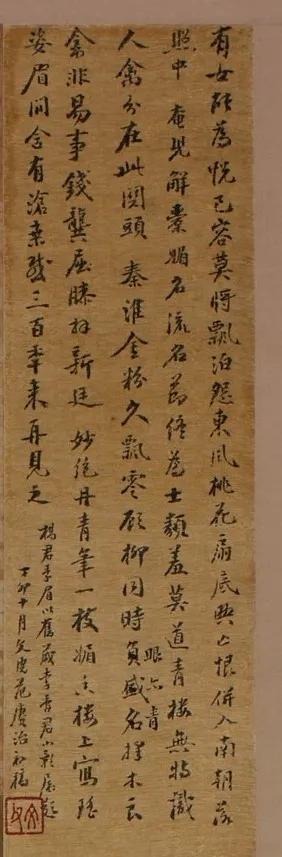 有女能為悅己容莫將飄泊怨東風桃花扇底興亡恨併入南朝落
照中 奄兒解橐媚名流名節為士類羞莫道青樓無特識
人禽分在此關頭 秦淮金粉久飄零顧柳同時負盛名擇木良
眼亦青
禽非易事錢龔屈膝拜新廷 妙絕丹青筆一枝媚香樓上寫瑤
姿眉間含有滄桑感三百年來再見之
楊君季眉以舊藏李香君小影屬題
丁卯十月文虎范賡治初稿